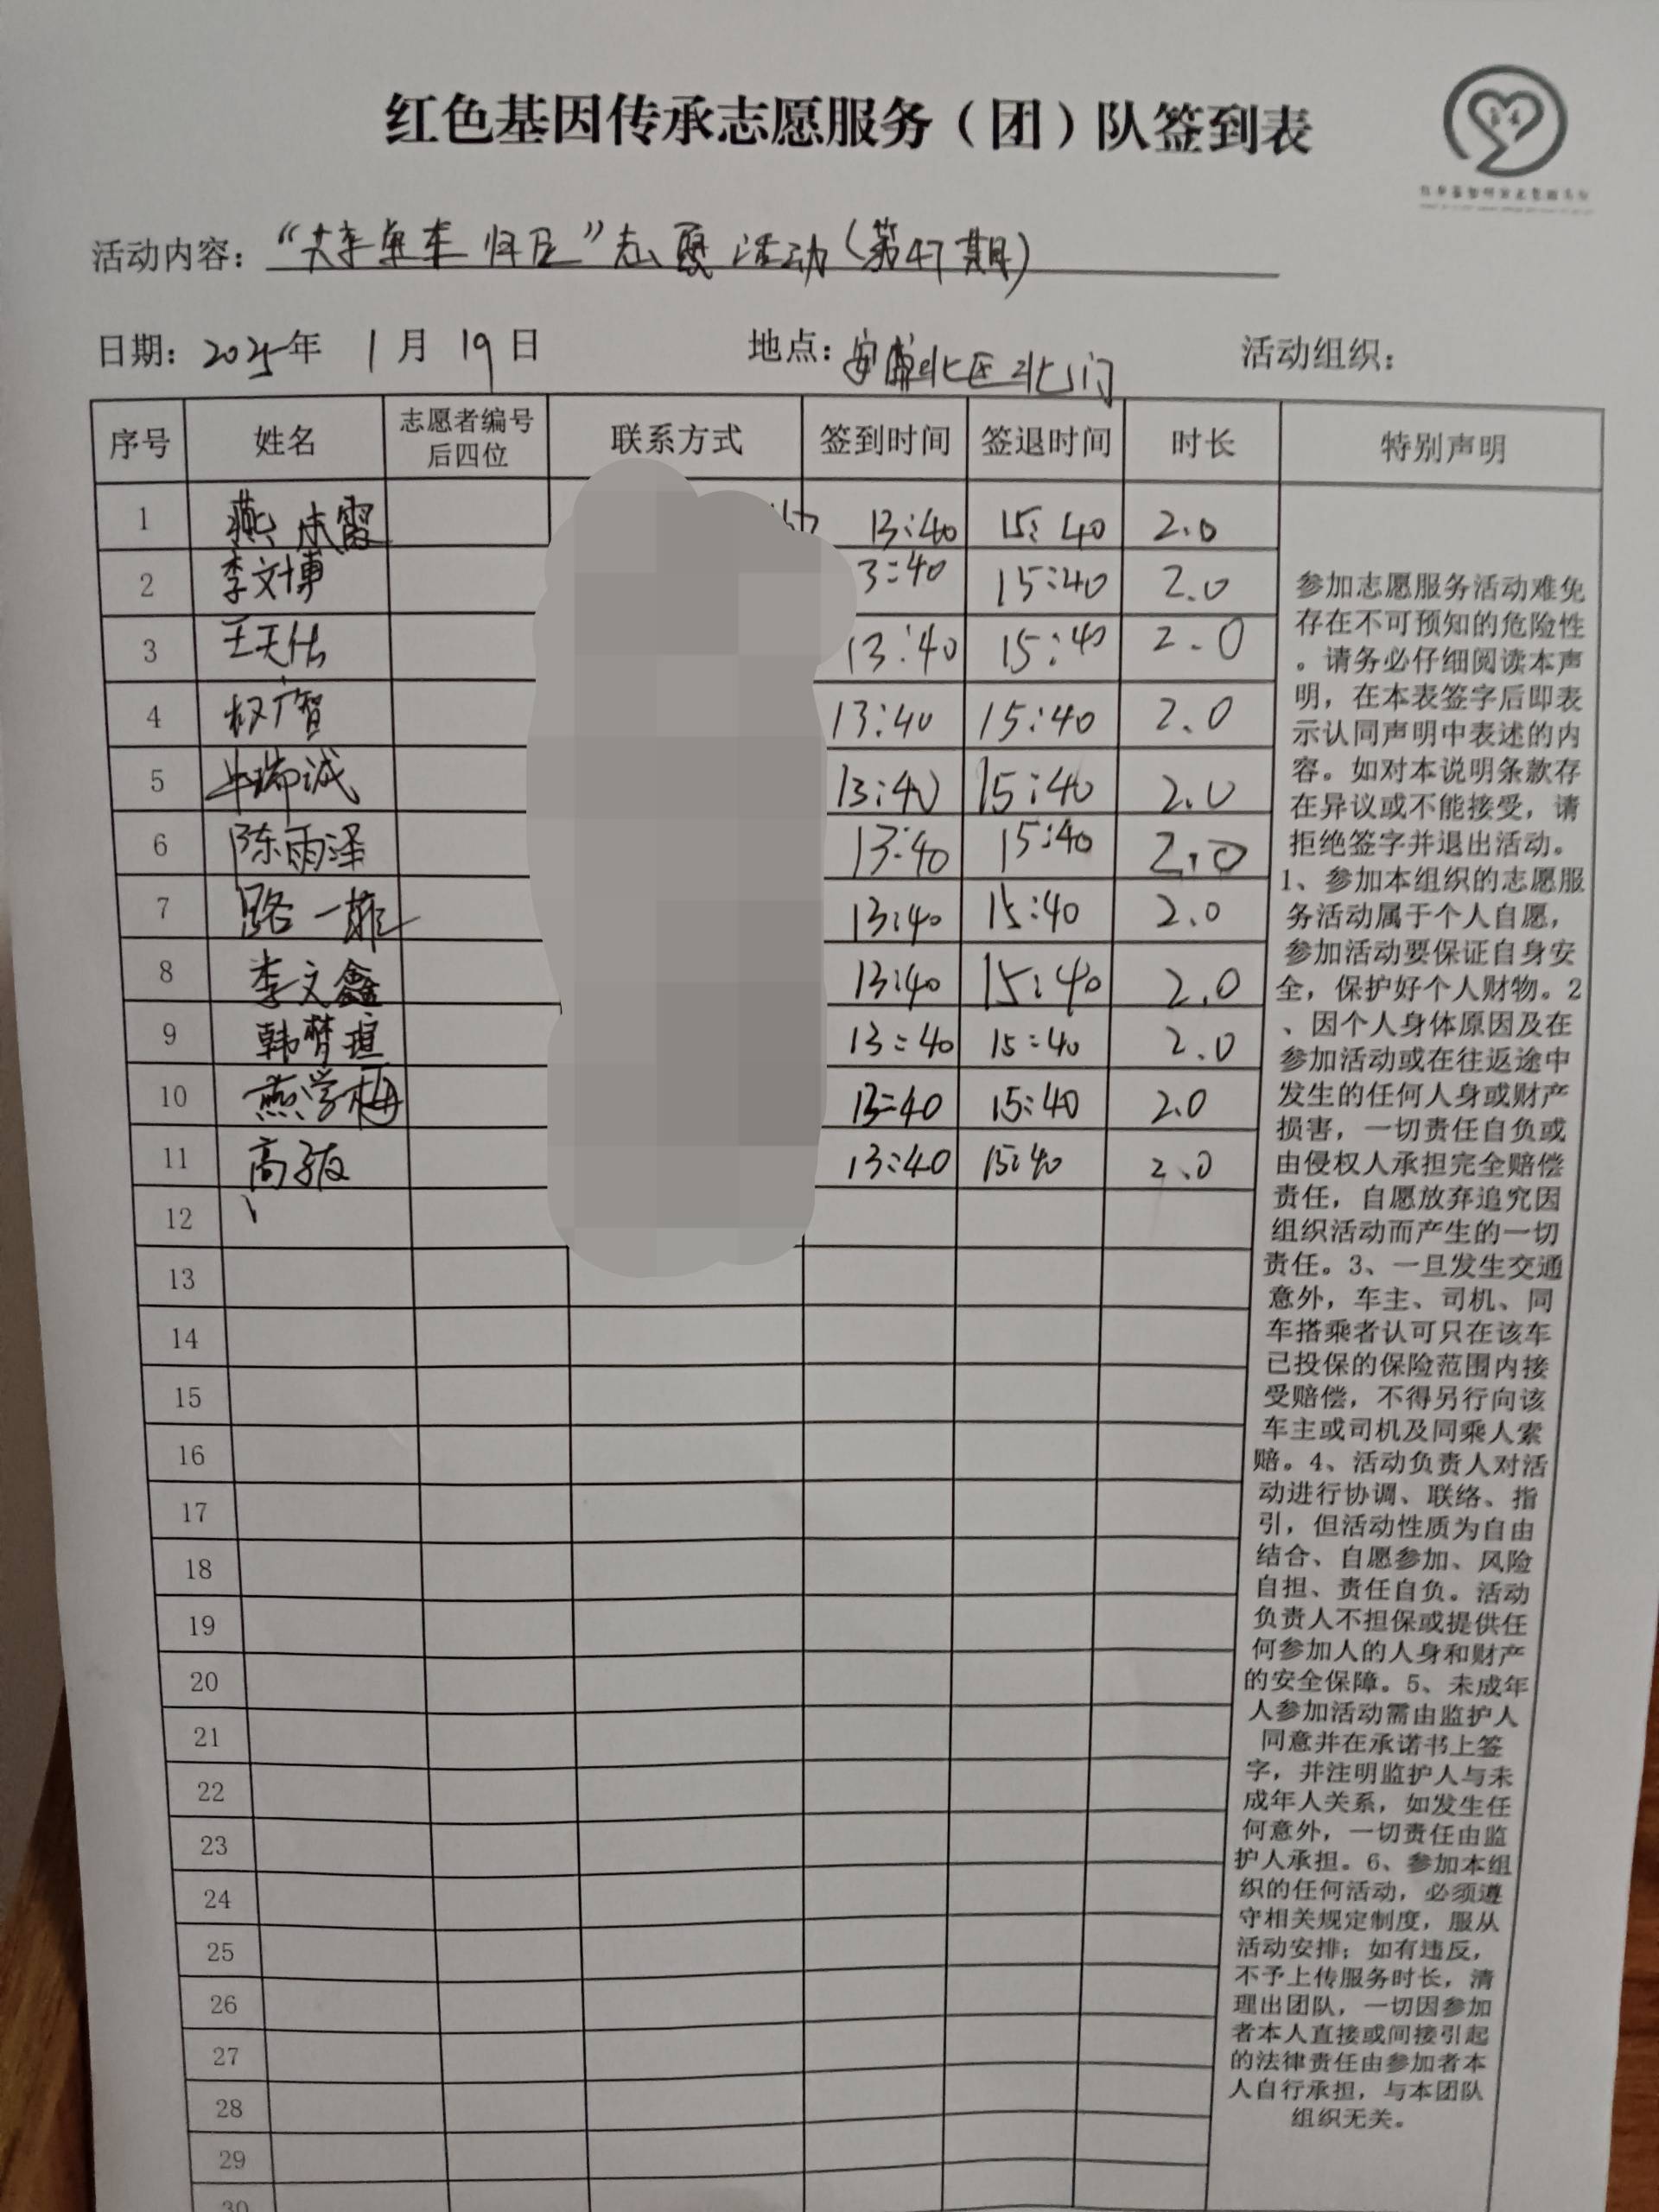 红色基因传承志愿服务（团）队签到表
活动内容：“共享单车归位”志愿活动（第47期）
日期：2025年 1月 19日 地点：北区北门 活动组织：
序号 姓名 志愿者编号后四位 联系方式 签到时间 签退时间 时长 特别声明
1 燕 霞 13:40 15:40 2.0
2 李文博 3:40 15:40 2.0
3 王天佑 13:40 15:40 2.0
4 权广智 13:40 15:40 2.0
5 牛瑞诚 13:40 15:40 2.0
6 陈雨泽 13:40 15:40 2.0
7 路一 13:40 15:40 2.0
8 李文鑫 13:40 15:40 2.0
9 韩梦瑄 13:40 15:40 2.0
10 燕学梅 13:40 15:40 2.0
11 高 13:40 15:40 2.0
12
13
14
15
16
17
18
19
20
21
22
23
24
25
26
27
28
29
30
参加志愿服务活动难免
存在不可预知的危险性
。请务必仔细阅读本声
明，在本表签字后即表
示认同声明中表述的内
容。如对本说明条款存
在异议或不能接受，请
拒绝签字并退出活动。
1、参加本组织的志愿服
务活动属于个人自愿，
参加活动要保证自身安
全，保护好个人财物。2
、因个人身体原因及在
参加活动或在往返途中
发生的任何人身或财产
损害，一切责任自负或
由侵权人承担完全赔偿
责任，自愿放弃追究因
组织活动而产生的一切
责任。3、一旦发生交通
意外，车主、司机、同
车搭乘者认可只在该车
已投保的保险范围内接
受赔偿，不得另行向该
车主或司机及同乘人索
赔。4、活动负责人对活
动进行协调、联络、指
引，但活动性质为自由
结合、自愿参加、风险
自担、责任自负。活动
负责人不担保或提供任
何参加人的人身和财产
的安全保障。5、未成年
人参加活动需由监护人
同意并在承诺书上签
字，并注明监护人与未
成年人关系，如发生任
何意外，一切责任由监
护人承担。6、参加本组
织的任何活动，必须遵
守相关规定制度，服从
活动安排；如有违反，
不予上传服务时长，清
理出团队，一切因参加
者本人直接或间接引起
的法律责任由参加者本
人自行承担，与本团队
组织无关。